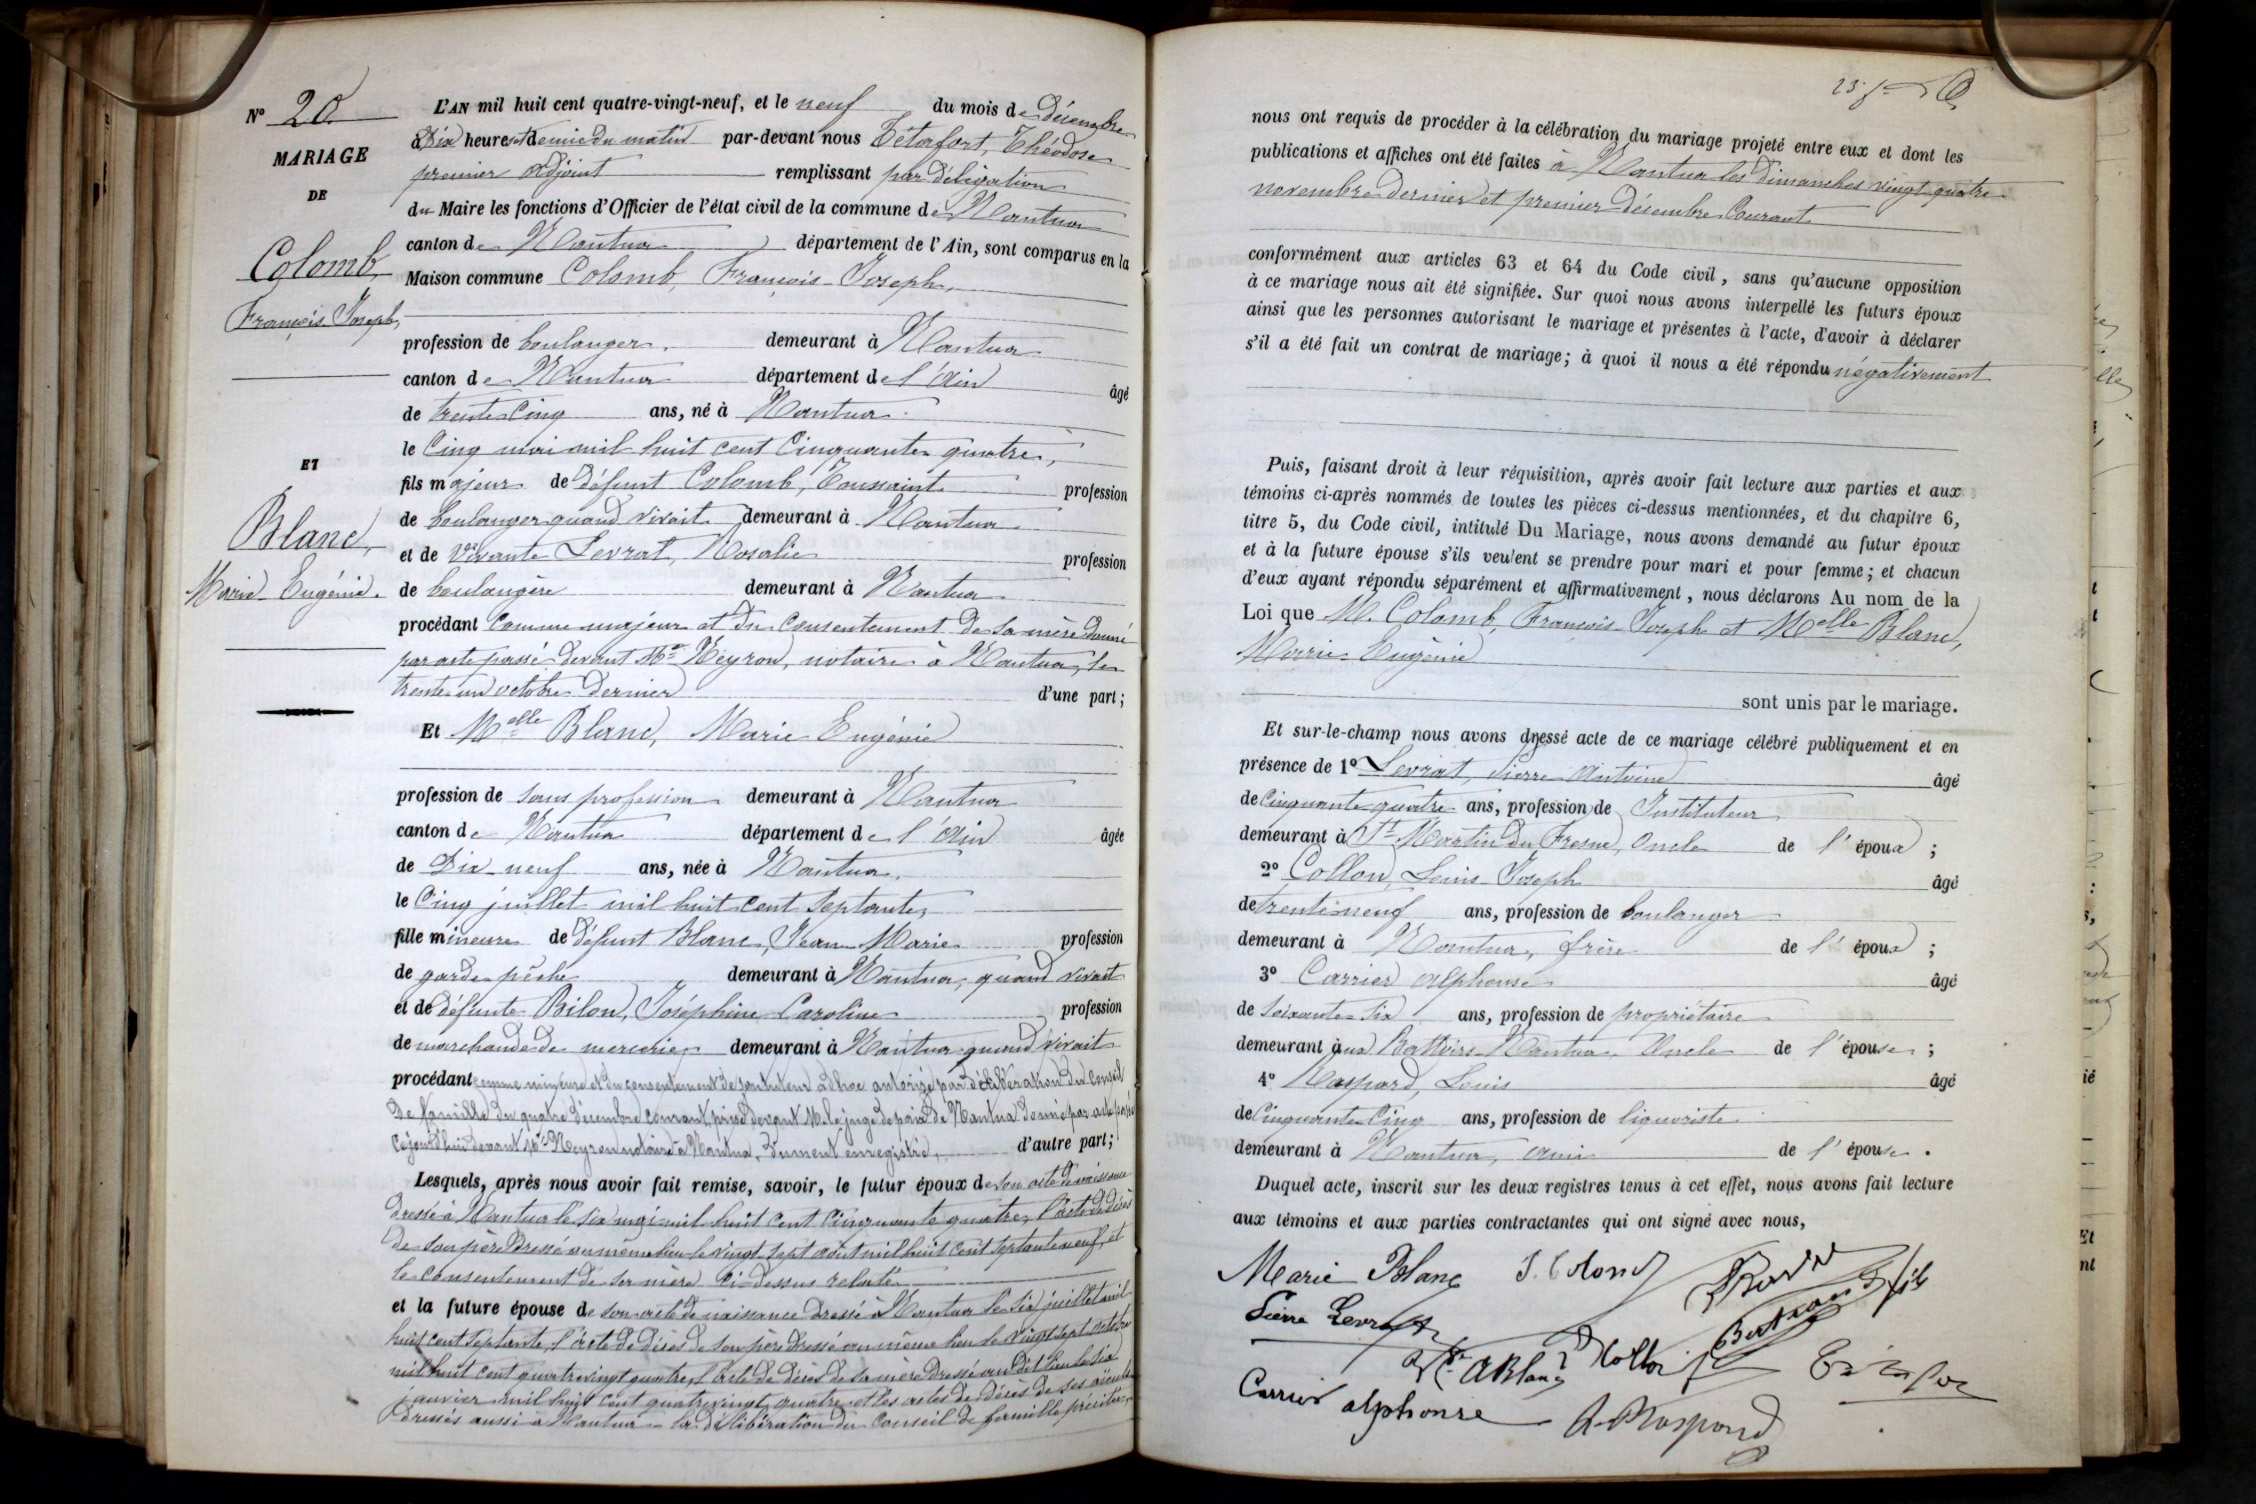 N° 20
MARIAGE
DE
Colomb,
François Joseph,
ET
Blanc,
Marie Eugénie.
L'AN mil huit cent quatre-vingt-neuf, et le neuf du mois de décembre
à Dix heures et demie du matin par-devant nous Tétafort, Théodose
premier adjoint remplissant par délégation
du Maire les fonctions d'Officier de l'état civil de la commune de Nantua
canton de Nantua département de l'Ain, sont comparus en la
Maison commune Colomb, François-Joseph,
profession de boulanger. demeurant à Nantua
canton de Nantua département de l'Ain âgé
de trente cinq ans, né à Nantua.
le Cinq mai mil huit cent Cinquante quatre,
fils majeur de défunt Colomb, Toussaint profession
de boulanger quand vivait demeurant à Nantua
et de vivante Levrat, Rosalie profession
de boulangère demeurant à Nantua
procédant Comme majeur et du Consentement de sa mère donné
par acte passé devant Me Neyron, notaire à Nantua, le
trente un octobre dernier d'une part;
Et Melle Blanc, Marie Eugénie
profession de sans profession demeurant à Nantua
canton de Nantua département de l'Ain âgée
de Dix-neuf ans, née à Nantua.
le Cinq juillet mil huit cent septante,
fille mineure de défunt Blanc, Jean Marie profession
de garde pêche demeurant à Nantua, quand vivait
et de défunte Bilon, Joséphine Caroline profession
de marchande de mercerie demeurant à Nantua quand vivait
procédant comme mineure et du consentement de son tuteur ad hoc autorisé par délibération du Conseil
de famille du quatre décembre courant, prise devant M. le juge de paix de Nantua donné par acte passé
cejourd'hui devant Me Neyron notaire à Nantua, dûment enregistré, d'autre part;
Lesquels, après nous avoir fait remise, savoir, le futur époux de son acte de naissance
dressé à Nantua le six mai mil huit cent Cinquante quatre, l'acte de décès
de son père dressé au même lieu le vingt sept août mil huit cent septante neuf, et
le consentement de sa mère ci-dessus relaté
et la future épouse de son acte de naissance dressé à Nantua le six juillet mil
huit cent septante, l'acte de décès de son père dressé au même lieu le vingt sept octobre
mil huit cent quatre vingt quatre, l'acte de décès de sa mère dressé au dit lieu le six
janvier mil huit cent quatre vingt quatre et les actes de décès de ses aïeuls
dressés aussi à Nantua - la délibération du Conseil de famille précitée,
nous ont requis de procéder à la célébration du mariage projeté entre eux et dont les
publications et affiches ont été faites à Nantua les dimanches vingt quatre
novembre dernier et premier décembre Courant
conformément aux articles 63 et 64 du Code civil, sans qu'aucune opposition
à ce mariage nous ait été signifiée. Sur quoi nous avons interpellé les futurs époux
ainsi que les personnes autorisant le mariage et présentes à l'acte, d'avoir à déclarer
s'il a été fait un contrat de mariage; à quoi il nous a été répondu négativement
Puis, faisant droit à leur réquisition, après avoir fait lecture aux parties et aux
témoins ci-après nommés de toutes les pièces ci-dessus mentionnées, et du chapitre 6,
titre 5, du Code civil, intitulé Du Mariage, nous avons demandé au futur époux
et à la future épouse s'ils veulent se prendre pour mari et pour femme; et chacun
d'eux ayant répondu séparément et affirmativement, nous déclarons Au nom de la
Loi que M. Colomb, François Joseph et Melle Blanc,
Marie Eugénie
sont unis par le mariage.
Et sur-le-champ nous avons dressé acte de ce mariage célébré publiquement et en
présence de 1° Levrat, Pierre Antoine âgé
de Cinquante quatre ans, profession de Instituteur
demeurant à St Martin du Fresne, Oncle de l'époux;
2° Collon, Louis Joseph âgé
de trente neuf ans, profession de boulanger
demeurant à Nantua, frère de l'époux;
3° Carrier Alphonse âgé
de soixante six ans, profession de propriétaire
demeurant aux Battoirs Nantua, Oncle de l'épouse;
4° Raspard, Louis âgé
de Cinquante Cinq ans, profession de liquoriste
demeurant à Nantua, ami de l'épouse.
Duquel acte, inscrit sur les deux registres tenus à cet effet, nous avons fait lecture
aux témoins et aux parties contractantes qui ont signé avec nous,
Marie Blanc J. Colomb
Pierre Levrat Bertrand fils
A Blanc Collon
Carrier alphonse